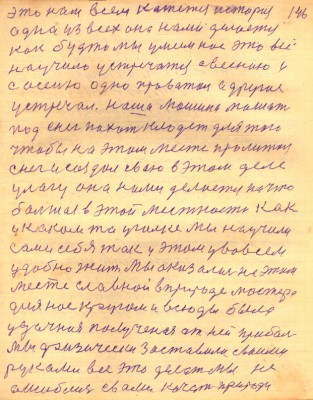 это нам всем кажется история 146
одна из всех она нами делается
как будто мы умем нас это всё
научило встречатся с весною и
с осенью одно проважаи а другое
встречай. наша машина пашет
под снег пахот кладет для того
чтобы на этом месте пролитой
снег и создал сваю в этом деле
влагу она нами делается на что
болшая в этой местности как
и каком то уголке мы научили
сами себя так у этом у вовсем
удобно жить мы оказалис на этом
месте славной в природе мастера
для нас кругом и всюды была
удачния полученая от ней прибал
мы физически заставили своими
руками все это делат мы не
ошиблис с вами как т природи